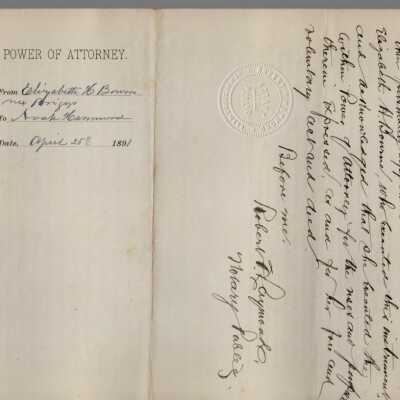 POWER OF ATTORNEY.
From Elizabeth H Bourne
nee Briggs
To Noah Hammond
Date, April 25th 1891
Elizabeth H Bourne, who executed this instrument
and acknowledged that she executed the
within Power of attorney for the uses and purposes
therein expressed, as and for her free and
voluntary act and deed,
Before me,
Robert
Notary Public.